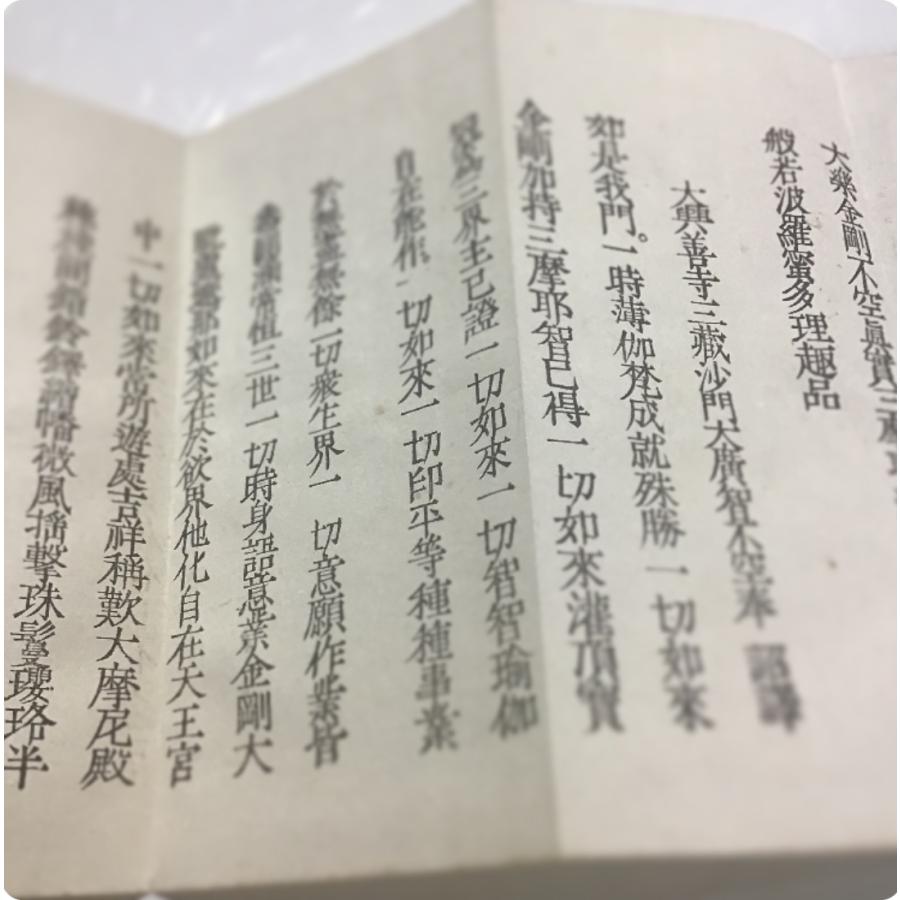 大樂金剛不空真實三麼耶
般若波羅蜜多理趣品
大興善寺三藏沙門大廣智不空奉 詔譯
如是我聞。一時薄伽梵成就殊勝一切如來
金剛加持三摩耶智已得一切如來灌頂寶
冠為三界主已證一切如來一切智智瑜伽
自在能作一切如來一切印平等種種事業
於無盡無餘一切衆生界一切意願作業皆
悉圓滿常恒三世一切時身語意業金剛大
毗盧遮那如來在於欲界他化自在天王宮
中一切如來常所遊處吉祥稱歎大摩尼殿
種種間錯鈴鐸繒幡微風搖擊珠鬘瓔珞半